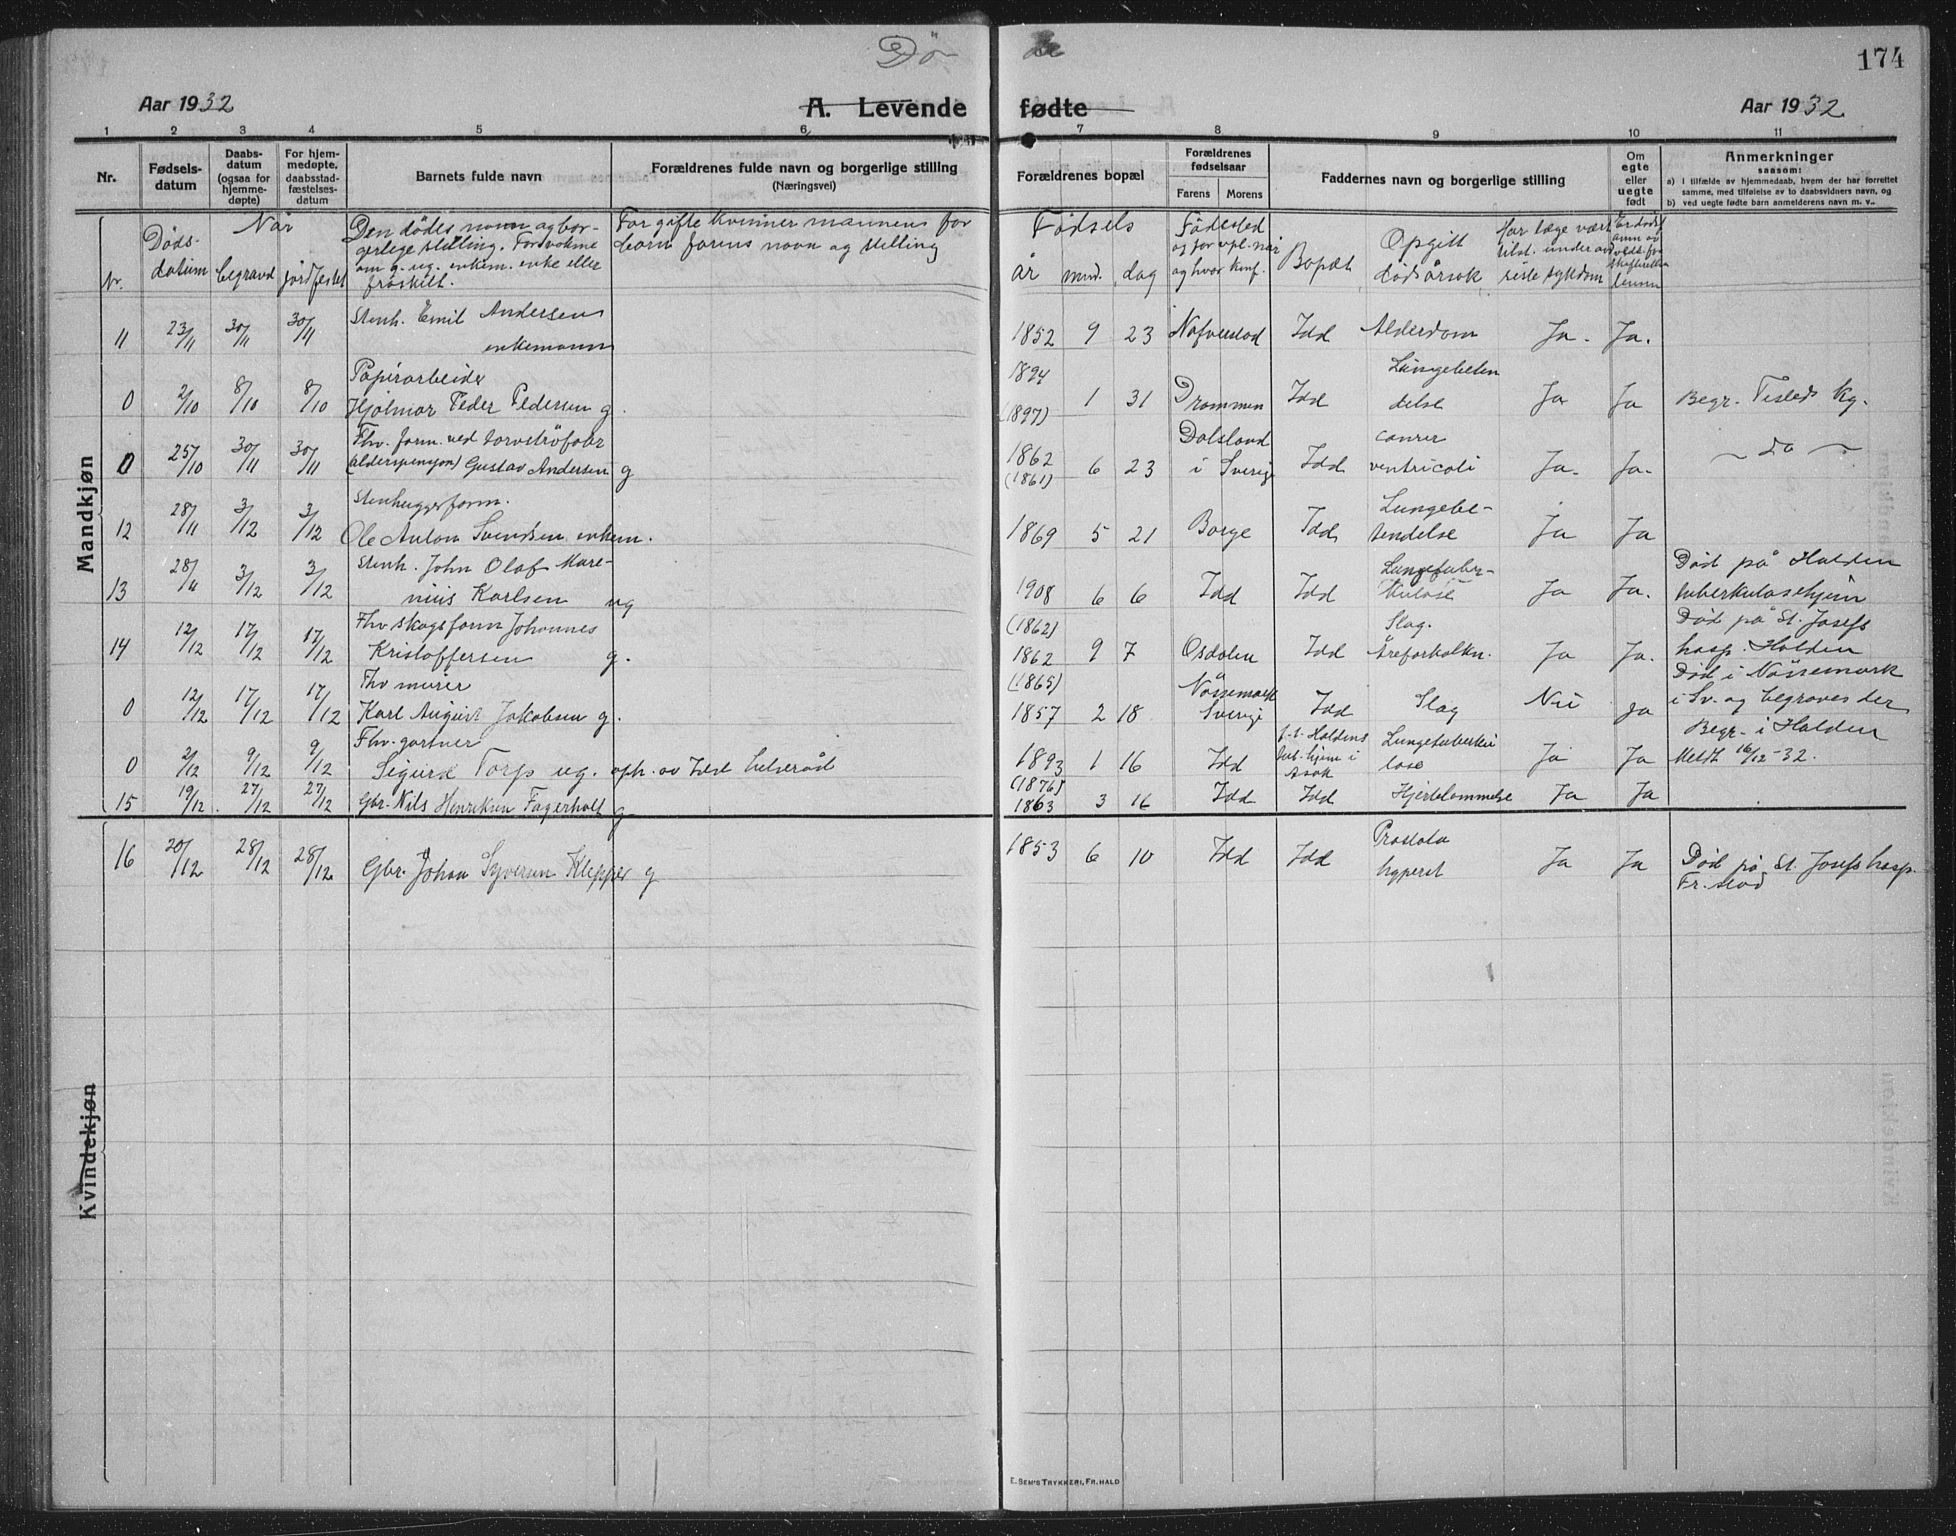 Dø de
174
Aar 1932
A. Levende fødte
Aar 1932
1 2 3 4 5 6 7 8 9 10 11
Nr.
Fødsels-
datum
Daabs-
datum
(ogsaa for
hjemme-
døpte)
For hjem-
medøpte,
daabsstad-
fæstelses-
datum
Barnets fulde navn
Forældrenes fulde navn og borgerlige stilling
(Næringsvei)
Forældrenes bopæl
Forældrenes
fødselsaar
Farens Morens
Faddernes navn og borgerlige stilling
Om
egte
eller
uegte
født
Anmerkninger
saasom:
a) i tilfælde av hjemmedaab, hvem der har forrettet
samme, med tilføielse av to daabsvidners navn, og
b) ved uegte født barn anmelderens navn m. v..
Nr.
Døds-
datum
Når
begravd jordfestet
Den dødes navn og bor-
gerlege stilling. For voksne
om g. ug. enkem. enke eller
fraskilt.
For gifte kvinner mannens for
barn farens navn og stilling
Fødsels
år mnd. dag
Fødested
og for opl. når
og hvor konf.
Bopæl
Opgitt
dødsårsak
Har læge vært
tilst. under
siste sykdom
Mandkjøn
11 23/11 30/11 30/11 Stenh. Emil Andersen
enkemann
1852 9 23 Idd Alderdom Ja. Ja.
0 2/10 8/10 8/10 Papirarbeider
Hjalmar Peder Pedersen g.
1894
(1897) 1 31 Drammen Idd Lungebeten
delse Ja Ja Begr. Tisleds Kg.
0 25/10 30/11 30/11 Fhv. form. ved torvströfabr
(alderspensjon) Gustav Andersen g
1862
(1861) 6 23 Dalsland
i Sverig Idd cancer
ventricoli Ja. Ja. do
12 28/11 3/12 3/12 Stenhuggerform.
Ole Anton Svendsen enkem.
1869 5 21 Borge Idd Lungebe-
tendelse Ja Ja
13 28/11 3/12 3/12 Stenh. John Olaf Mare-
nius Karlsen ug
1908 6 6 Idd Idd Lungetuber-
kulose Ja Ja. Død på Halden
tuberkulosehjem
14 12/12 17/12 17/12 Fhv skogsform Johannes
Kristoffersen g.
(1862)
1862 9 7 Osdalen Idd Slag.
Åreforkalkn. Ja Ja. Død på St. Josefs
hosp. Halden
0 12/12 17/12 17/12 Fhv murer
Karl August Jakobsen g.
(1865)
1857 2 18 Nössemark
Sverige Idd Slag Nei ja Død i Nössemark
i Sv. og begraves der
0 2/12 9/12 9/12 Fhv. gartner
Sigurd Torp ug. oph. av Idd helseråd
1893 1 16 Idd Haldens
tub. hjem i
Lungetuberku
lose Ja Ja Begr. i Halden
Meldt 16/12-32.
15 19/12. 27/12 27/12 Gbr. Nils Henriksen Fagerholt g
(1876)
1863 3 16 Idd Idd Hjertelammelse Ja Ja
16 20/12 28/12 28/12 Gbr. Johan Syversen Klepper g
1853 6 10 Idd Idd Prostata
hyperst Ja Ja Død på St. Josefs hosp.
Fr.stad
Kvindekjøn
E. SEM'S TRYKKERI, FR. HALD